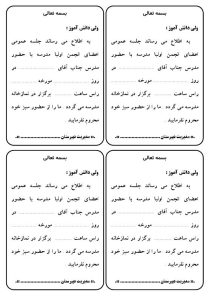 بسمه تعالی
ولی دانش آموز :
به اطلاع می رساند جلسه عمومی
اعضای انجمن اولیا مدرسه با حضور
مدرس جناب آقای ................ در
روز ................ مورخه ................
راس ساعت ............ برگزار در نمازخانه
مدرسه می گردد ما را از حضور سبز خود
محروم نفرمایید .
مدیریت شهرستان
بسمه تعالی
ولی دانش آموز :
به اطلاع می رساند جلسه عمومی
اعضای انجمن اولیا مدرسه با حضور
مدرس جناب آقای ................ در
روز ................ مورخه ................
راس ساعت ............ برگزار در نمازخانه
مدرسه می گردد ما را از حضور سبز خود
محروم نفرمایید .
مدیریت شهرستان
بسمه تعالی
ولی دانش آموز :
به اطلاع می رساند جلسه عمومی
اعضای انجمن اولیا مدرسه با حضور
مدرس جناب آقای ................ در
روز ................ مورخه ................
راس ساعت ............ برگزار در نمازخانه
مدرسه می گردد ما را از حضور سبز خود
محروم نفرمایید .
مدیریت شهرستان
بسمه تعالی
ولی دانش آموز :
به اطلاع می رساند جلسه عمومی
اعضای انجمن اولیا مدرسه با حضور
مدرس جناب آقای ................ در
روز ................ مورخه ................
راس ساعت ............ برگزار در نمازخانه
مدرسه می گردد ما را از حضور سبز خود
محروم نفرمایید .
مدیریت شهرستان